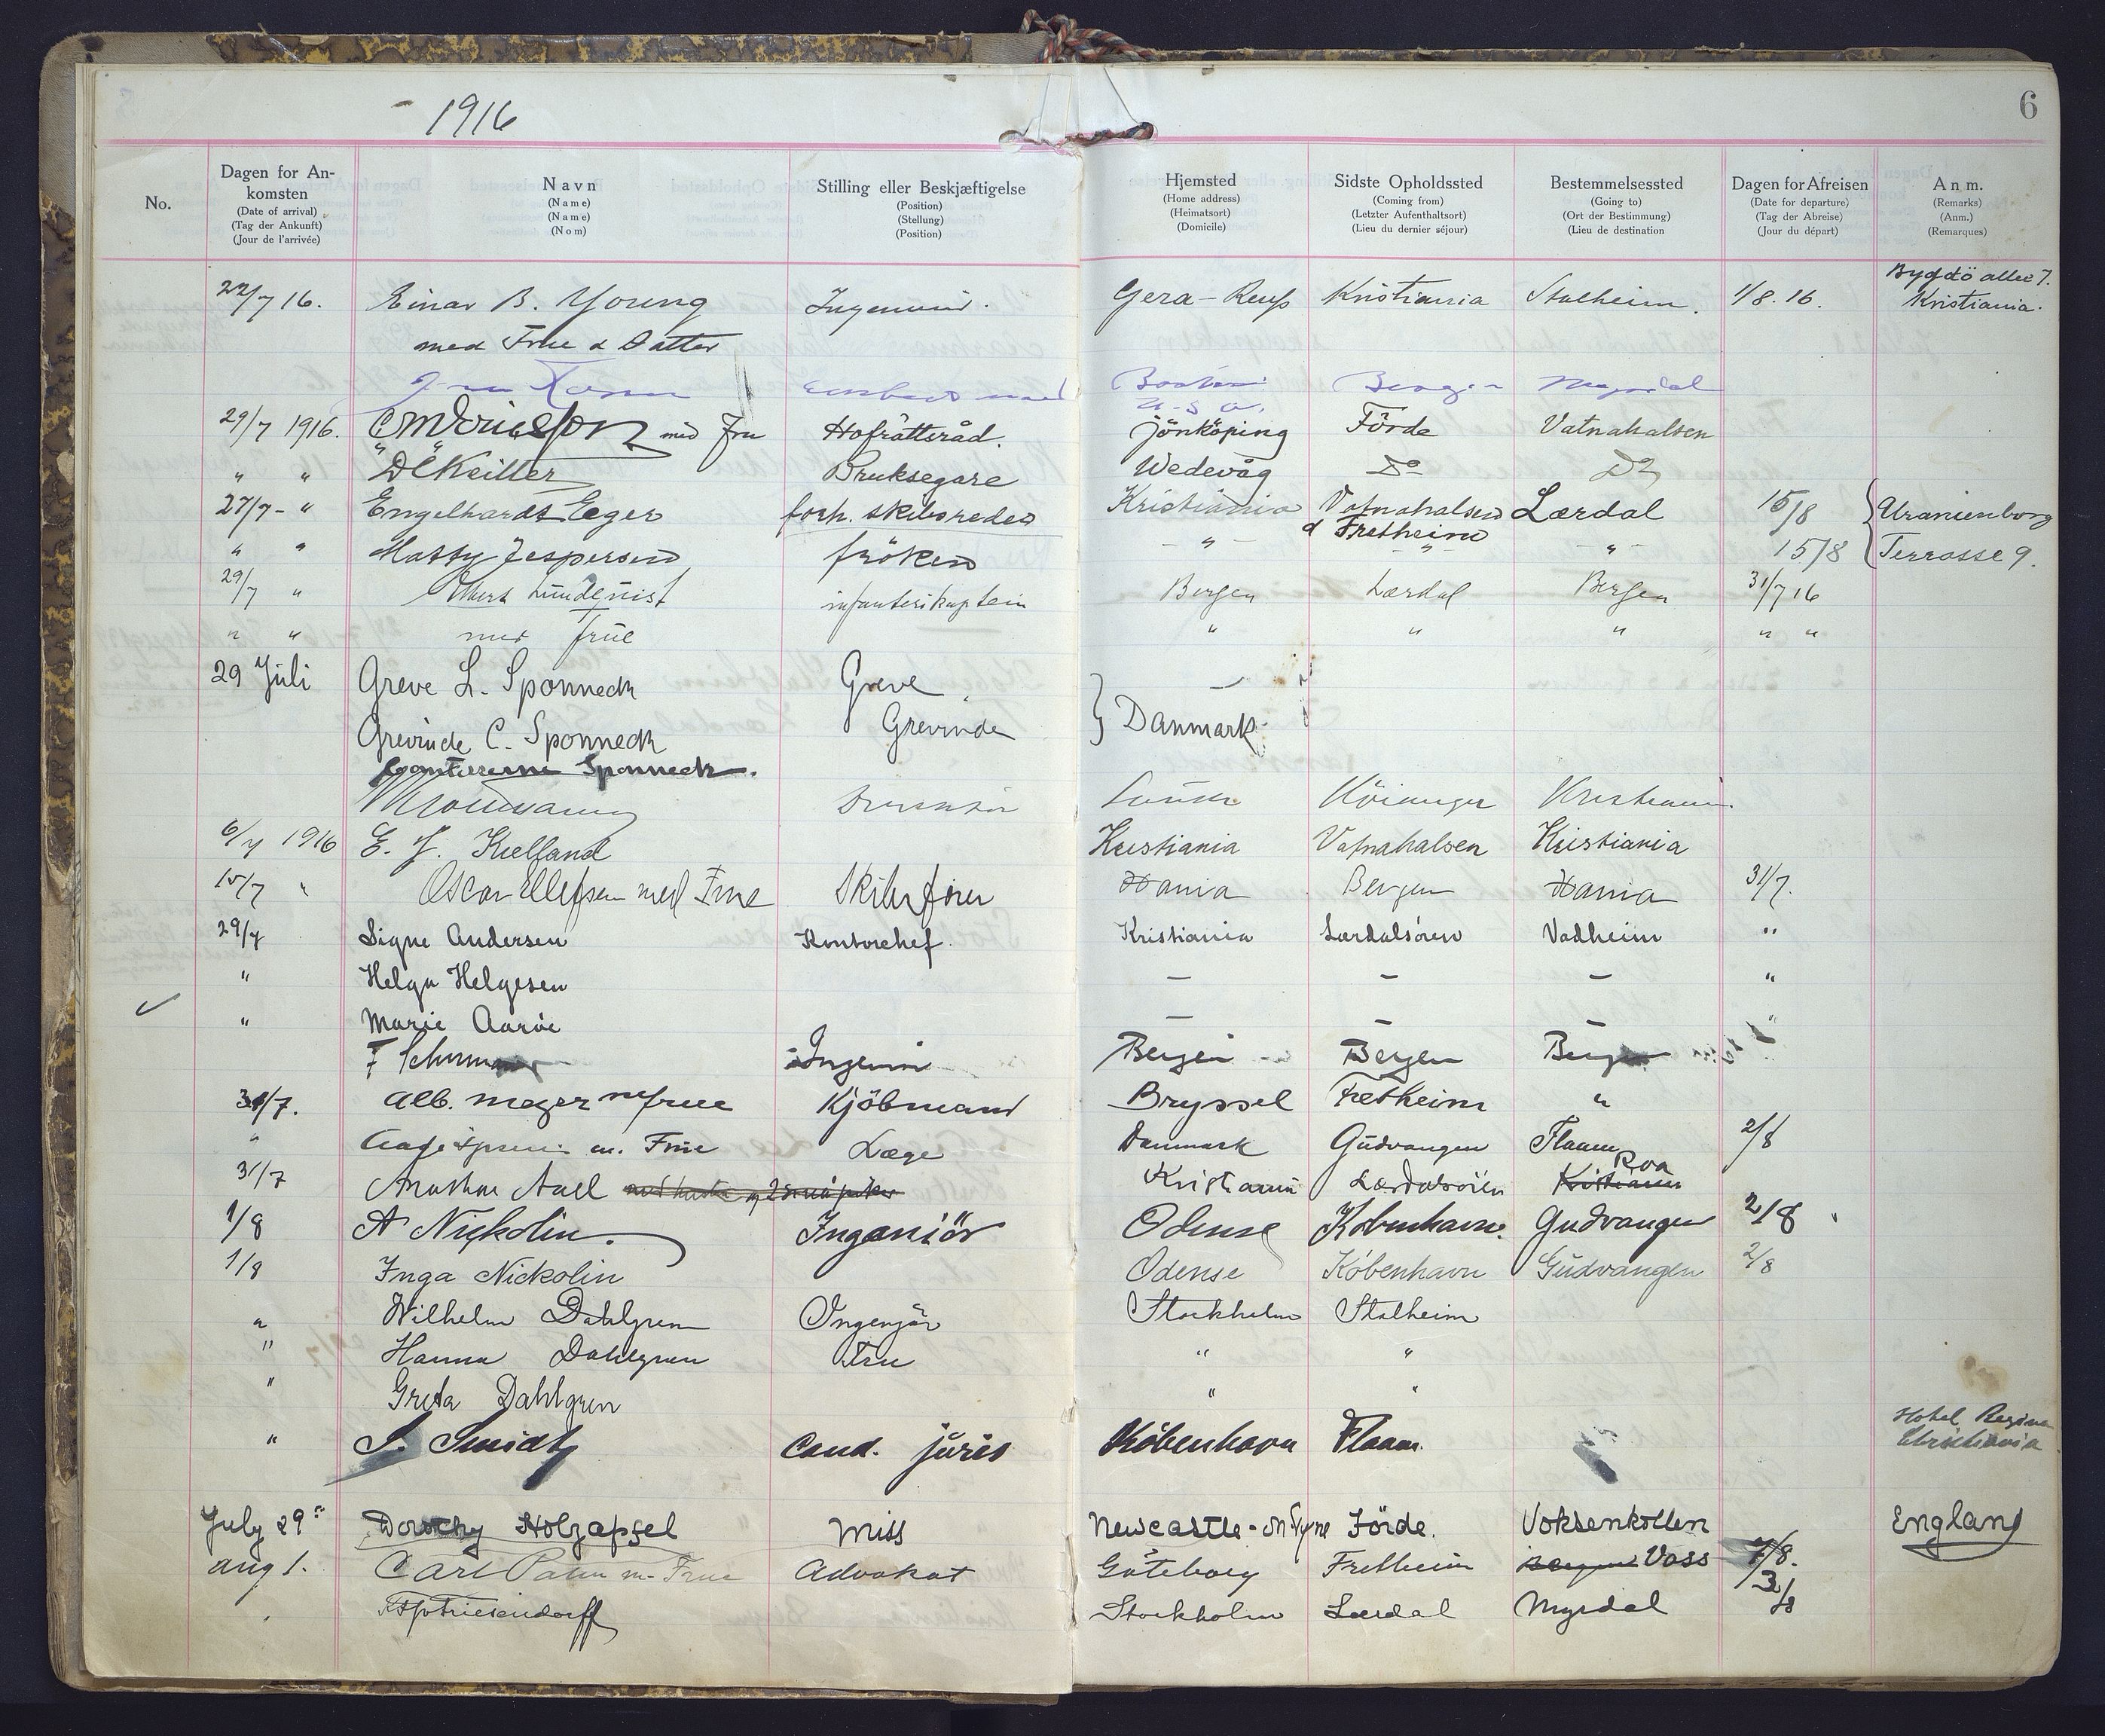 1916
6
No.
Dagen for An-
komsten
(Date of arrival)
(Tag der Ankunft)
(Jour de l'arrivée)
Navn
(Name)
(Name)
(Nom)
Stilling eller Beskjæftigelse
(Position)
(Stellung)
(Position)
Hjemsted
(Home address)
(Heimatsort)
(Domicile)
Sidste Opholdssted
(Coming from)
(Letzter Aufenthaltsort)
(Lieu du dernier séjour)
Bestemmelsessted
(Going to)
(Ort der Bestimmung)
(Lieu de destination
Dagen for Afreisen
(Date for departure)
(Tag der Abreise)
(Jour du départ)
Anm.
(Remarks)
(Anm.)
(Remarques)
Bygdö allee 7.
22/7 16. Einar B. Young Ingeniør. Gera-Reuss Kristiania Stalheim. 1/8.16. Kristiania.
med Frue & Datter
Boston Bergen Myrdal
U.S.A.
29/7 1916. med Fru Hofrätteråd. Jönköping Förde Vatnahalsen
" " Bruksegare Wedevåg Do Do
27/7 - " Engelhardt Eger forh. skibsreder Kristiania Vatnahalsen Lærdal 15/8 Uranienborg
& Fretheim
" " Jespersen fröken - " - - " - " 15/8 Terrasse 9.
29/7 " Lundqvist infanterikaptein Bergen Lærdal Bergen 31/7 16
" " med frue " " " " "
29 Juli Greve L. Sponneck Greve
Grevinde C. Sponneck Grevinde Danmark
Comtesserne Sponneck.
Kristiania
6/7 1916 E. J. Kielland Kristiania Vatnahalsen Kristiania
15/7 " Oscar Ellefsen med Frue Skibsfører Xania Bergen Xania 31/7.
29/7 Signe Andersen Kontorchef. Kristiania Lærdalsören Vadheim "
" Helga Helgesen - - - "
" Marie Aarøe - - - "
F Ingeniør Bergen Bergen Bergen
31/7. Alb. Meyer m frue Kjöbmand Bryssel Fretheim "
" Aage m. Frue Læge Danmark Gudvangen Flaam 2/8
Roa
31/7 Aall med og 2 små piker Kristiania Lærdalsören Kristiania
1/8 A Nickolin. Ingeniör Odense København. Gudvangen 2/8
1/8 Inga Nickolin Odense København Gudvangen 2/8
" Wilhelm Dahlgren Ingenjör Stockholm Stalheim
" Hanna Dahlgren Fru " "
" Greta Dahlgren " "
Hotel Regina
" S. Smidth Cand. juris København Flaam. Christiania
July 29th Dorothy Holzapfel Miss Newcastle-on-Tyne Förde. Voksenkollen England
Aug 1. Carl Palm m. Frue Advokat Göteborg Fretheim Bergen Voss 7/8.
Stockholm Lærdal Myrdal 3/8